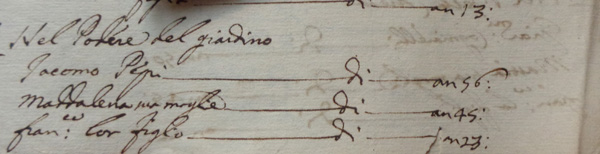 di an 13:
Nel Podere del giardino
Jacomo Pepi di an 56:
Maddalena sua moglie di an 45:
fran.co lor figlo di an 23: